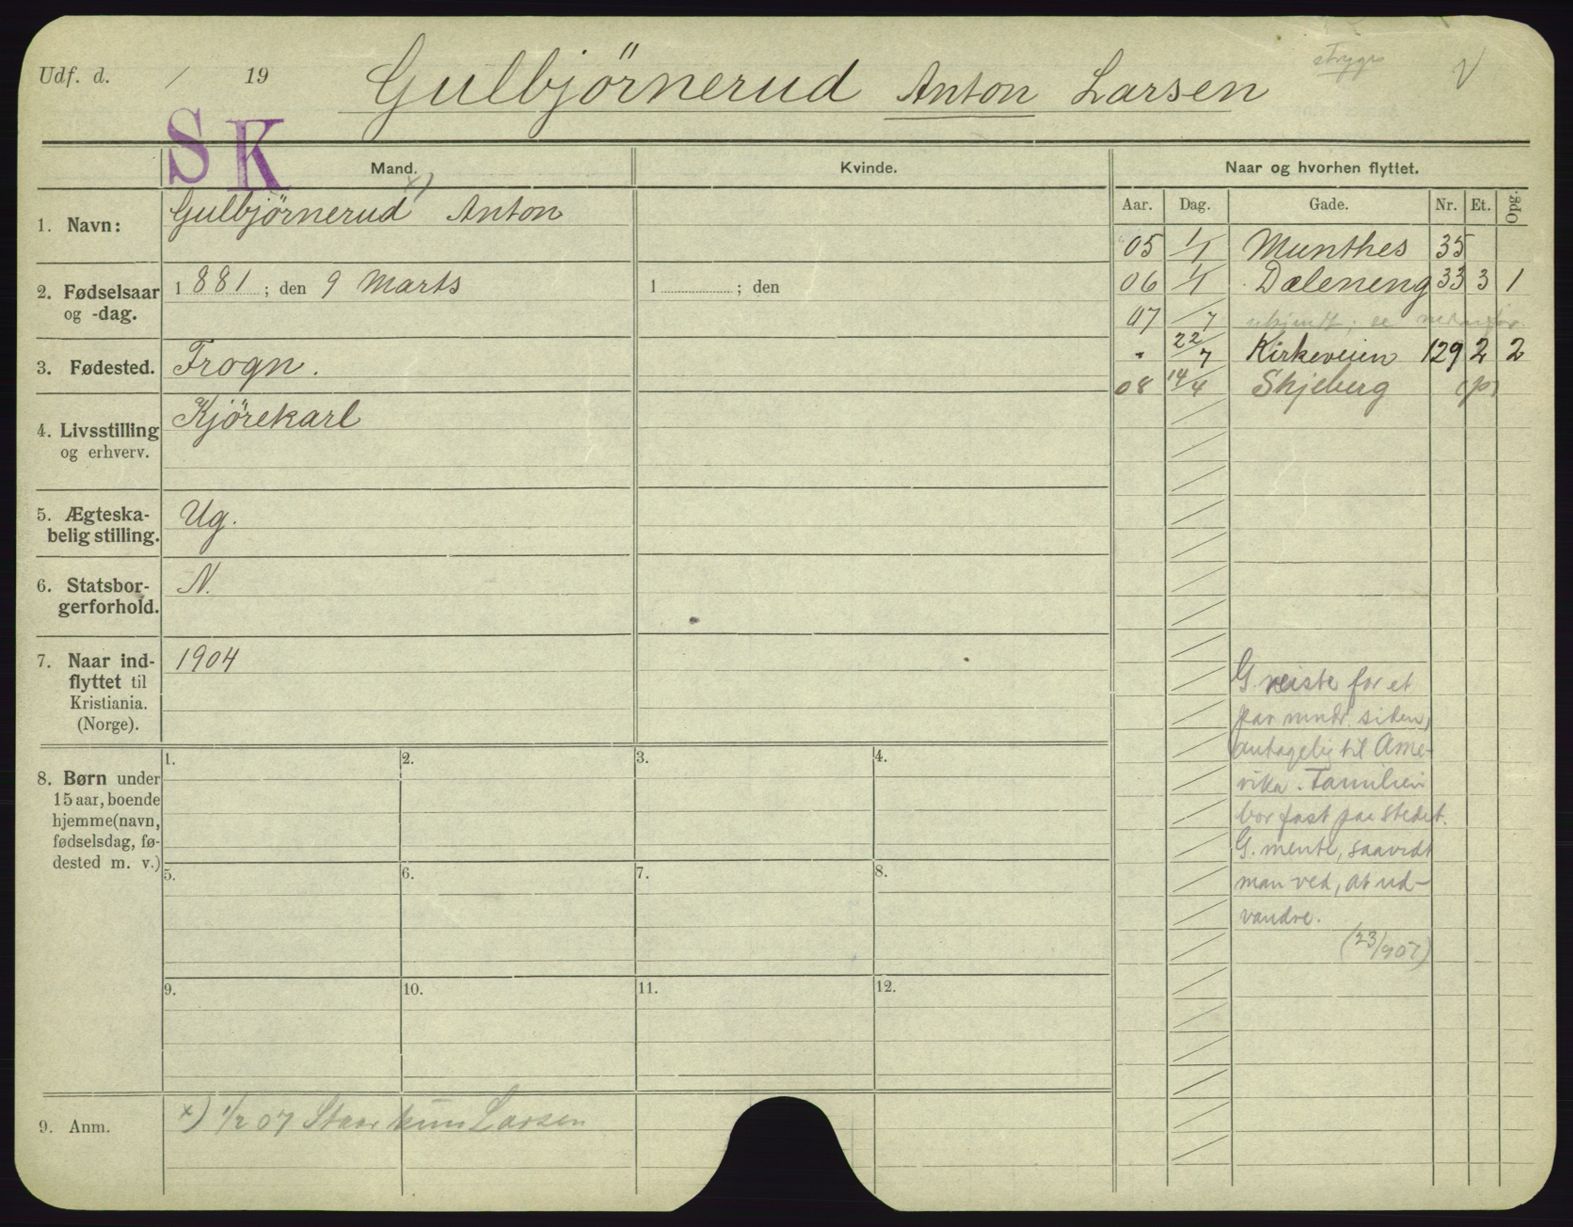 Udf. d. / 19 Gulbjörnerud Anton Larsen stryges V
SK
Mand. Kvinde. Naar og hvorhen flyttet.
Aar. Dag. Gade. Nr. Et. Opg.
1. Navn: Gulbjörnerud x) Anton
2. Fødselsaar og -dag. 1881; den 9 Marts 1 ; den
3. Fødested. Frogn.
4. Livsstilling og erhverv. Kjörekarl
5. Ægteska-
belig stilling. Ug.
6. Statsbor-
gerforhold. N.
7. Naar ind-
flyttet til
Kristiania.
(Norge). 1904
8. Børn under
15 aar, boende
hjemme (navn,
fødselsdag, fø-
dested m. v.)
1. 2. 3. 4.
5. 6. 7. 8.
9. 10. 11. 12.
9. Anm. x) 1/2 07 Staar kun Larsen
05 1/1 Munthes 35
06 1/1 Dæleneng 33 3 1
07 /7 ukjendt; se nedenfor.
" 22/7 Kirkeveien 129 2 2
08 14/4 Skjeberg (p)
G. reiste for et
par mndr. siden,
antagelig til Ame-
rika. Familien
bor fast paa stedet.
G. mente, saavidt
man ved, at ud-
vandre.
(23/907)